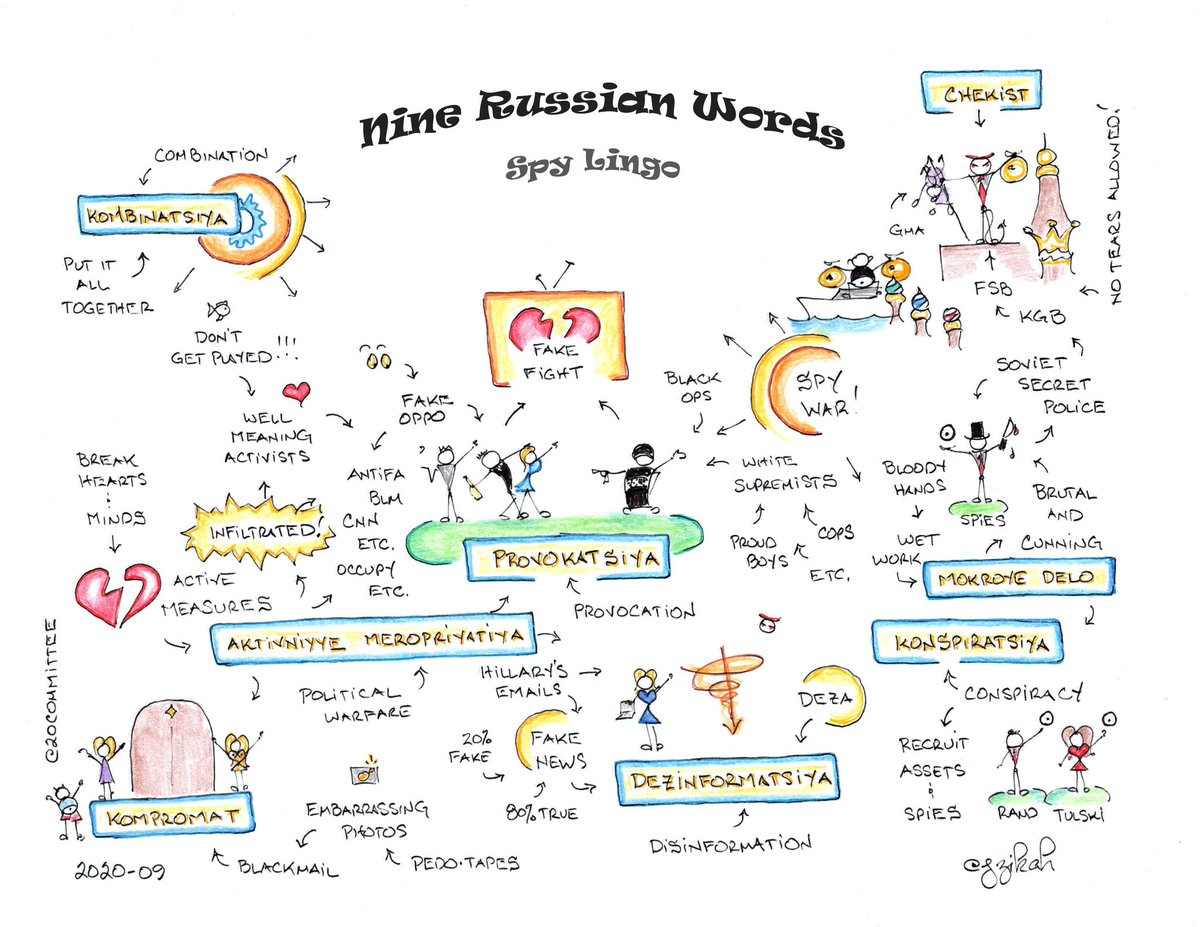 Nine Russian Words
Spy Lingo
CHEKIST
NO TEARS ALLOWED!
GMA
FSB
KGB
COMBINATION
KOMBINATSIYA
PUT IT
ALL
TOGETHER
DON'T
GET PLAYED!!!
WELL
MEANING
ACTIVISTS
FAKE
OPPO
FAKE
FIGHT
BLACK
OPS
SPY
WAR!
SOVIET
SECRET
POLICE
BREAK
HEARTS
MINDS
INFILTRATED!
ANTIFA
BLM
CNN
ETC.
OCCUPY
ETC.
POLICE
PROVOKATSIYA
PROVOCATION
WHITE
SUPREMISTS
PROUD
BOYS
COPS
ETC.
BLOODY
HANDS
SPIES
BRUTAL
AND
CUNNING
WET
WORK
MOKROYE DELO
KONSPIRATSIYA
CONSPIRACY
RECRUIT
ASSETS
SPIES
RAND
TULSKI
ACTIVE
MEASURES
AKTIVNIYYE MEROPRIYATIYA
POLITICAL
WARFARE
HILLARY'S
EMAILS
20%
FAKE
FAKE
NEWS
80% TRUE
DEZA
DEZINFORMATSIYA
DISINFORMATION
@20COMMITTEE
KOMPROMAT
EMBARRASSING
PHOTOS
BLACKMAIL
PEDO-TAPES
2020-09